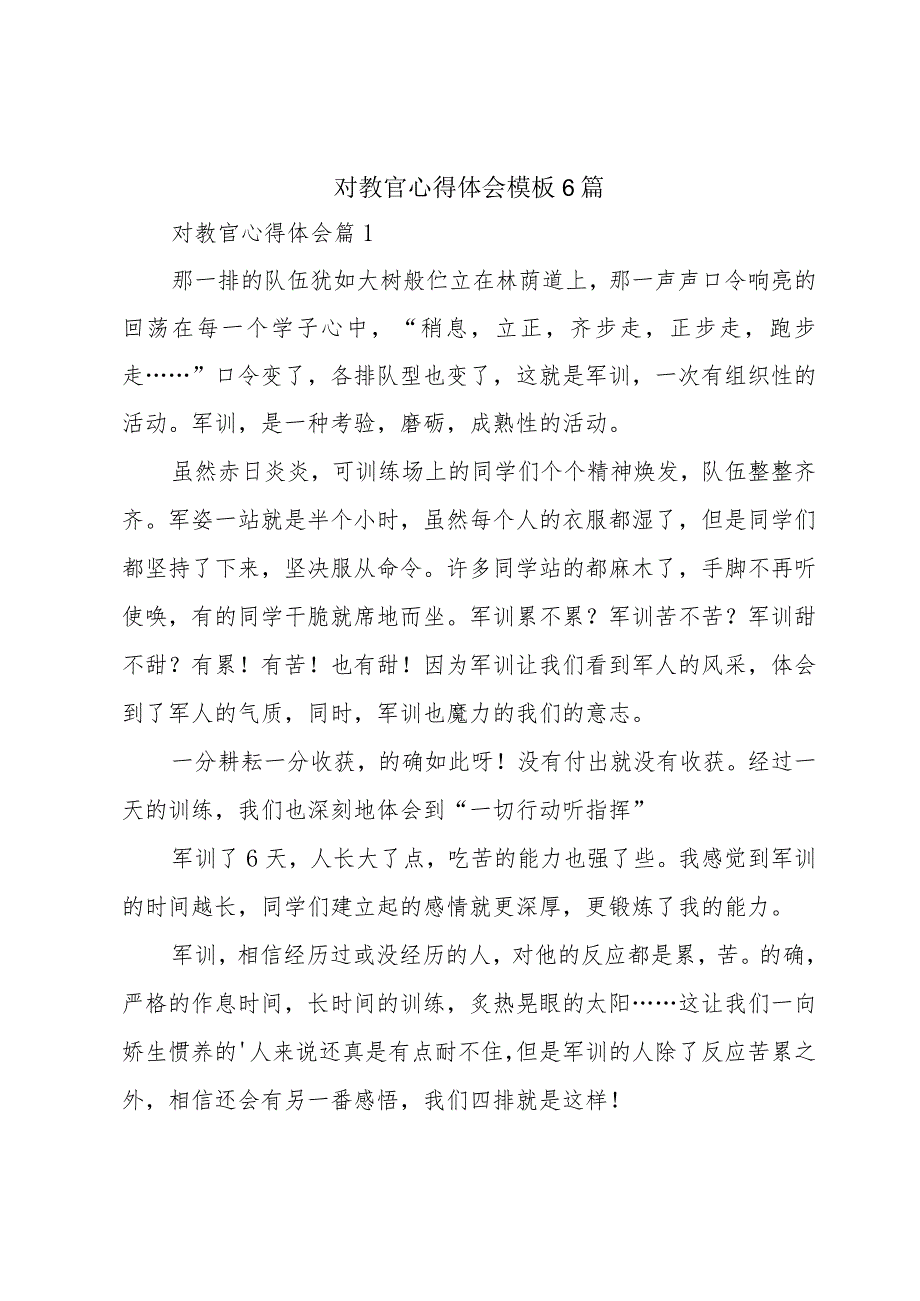 对教官心得体会模板6篇
对教官心得体会篇1
那一排的队伍犹如大树般伫立在林荫道上，那一声声口令响亮的
回荡在每一个学子心中，“稍息，立正，齐步走，正步走，跑步
走……”口令变了，各排队型也变了，这就是军训，一次有组织性的
活动。军训，是一种考验，磨砺，成熟性的活动。
虽然赤日炎炎，可训练场上的同学们个个精神焕发，队伍整整齐
齐。军姿一站就是半个小时，虽然每个人的衣服都湿了，但是同学们
都坚持了下来，坚决服从命令。许多同学站的都麻木了，手脚不再听
使唤，有的同学干脆就席地而坐。军训累不累？军训苦不苦？军训甜
不甜？有累！有苦！也有甜！因为军训让我们看到军人的风采，体会
到了军人的气质，同时，军训也魔力的我们的意志。
一分耕耘一分收获，的确如此呀！没有付出就没有收获。经过一
天的训练，我们也深刻地体会到“一切行动听指挥”
军训了6天，人长大了点，吃苦的能力也强了些。我感觉到军训
的时间越长，同学们建立起的感情就更深厚，更锻炼了我的能力。
军训，相信经历过或没经历的人，对他的反应都是累，苦。的确，
严格的作息时间，长时间的训练，炙热晃眼的太阳……这让我们一向
娇生惯养的'人来说还真是有点耐不住,但是军训的人除了反应苦累之
外，相信还会有另一番感悟，我们四排就是这样！